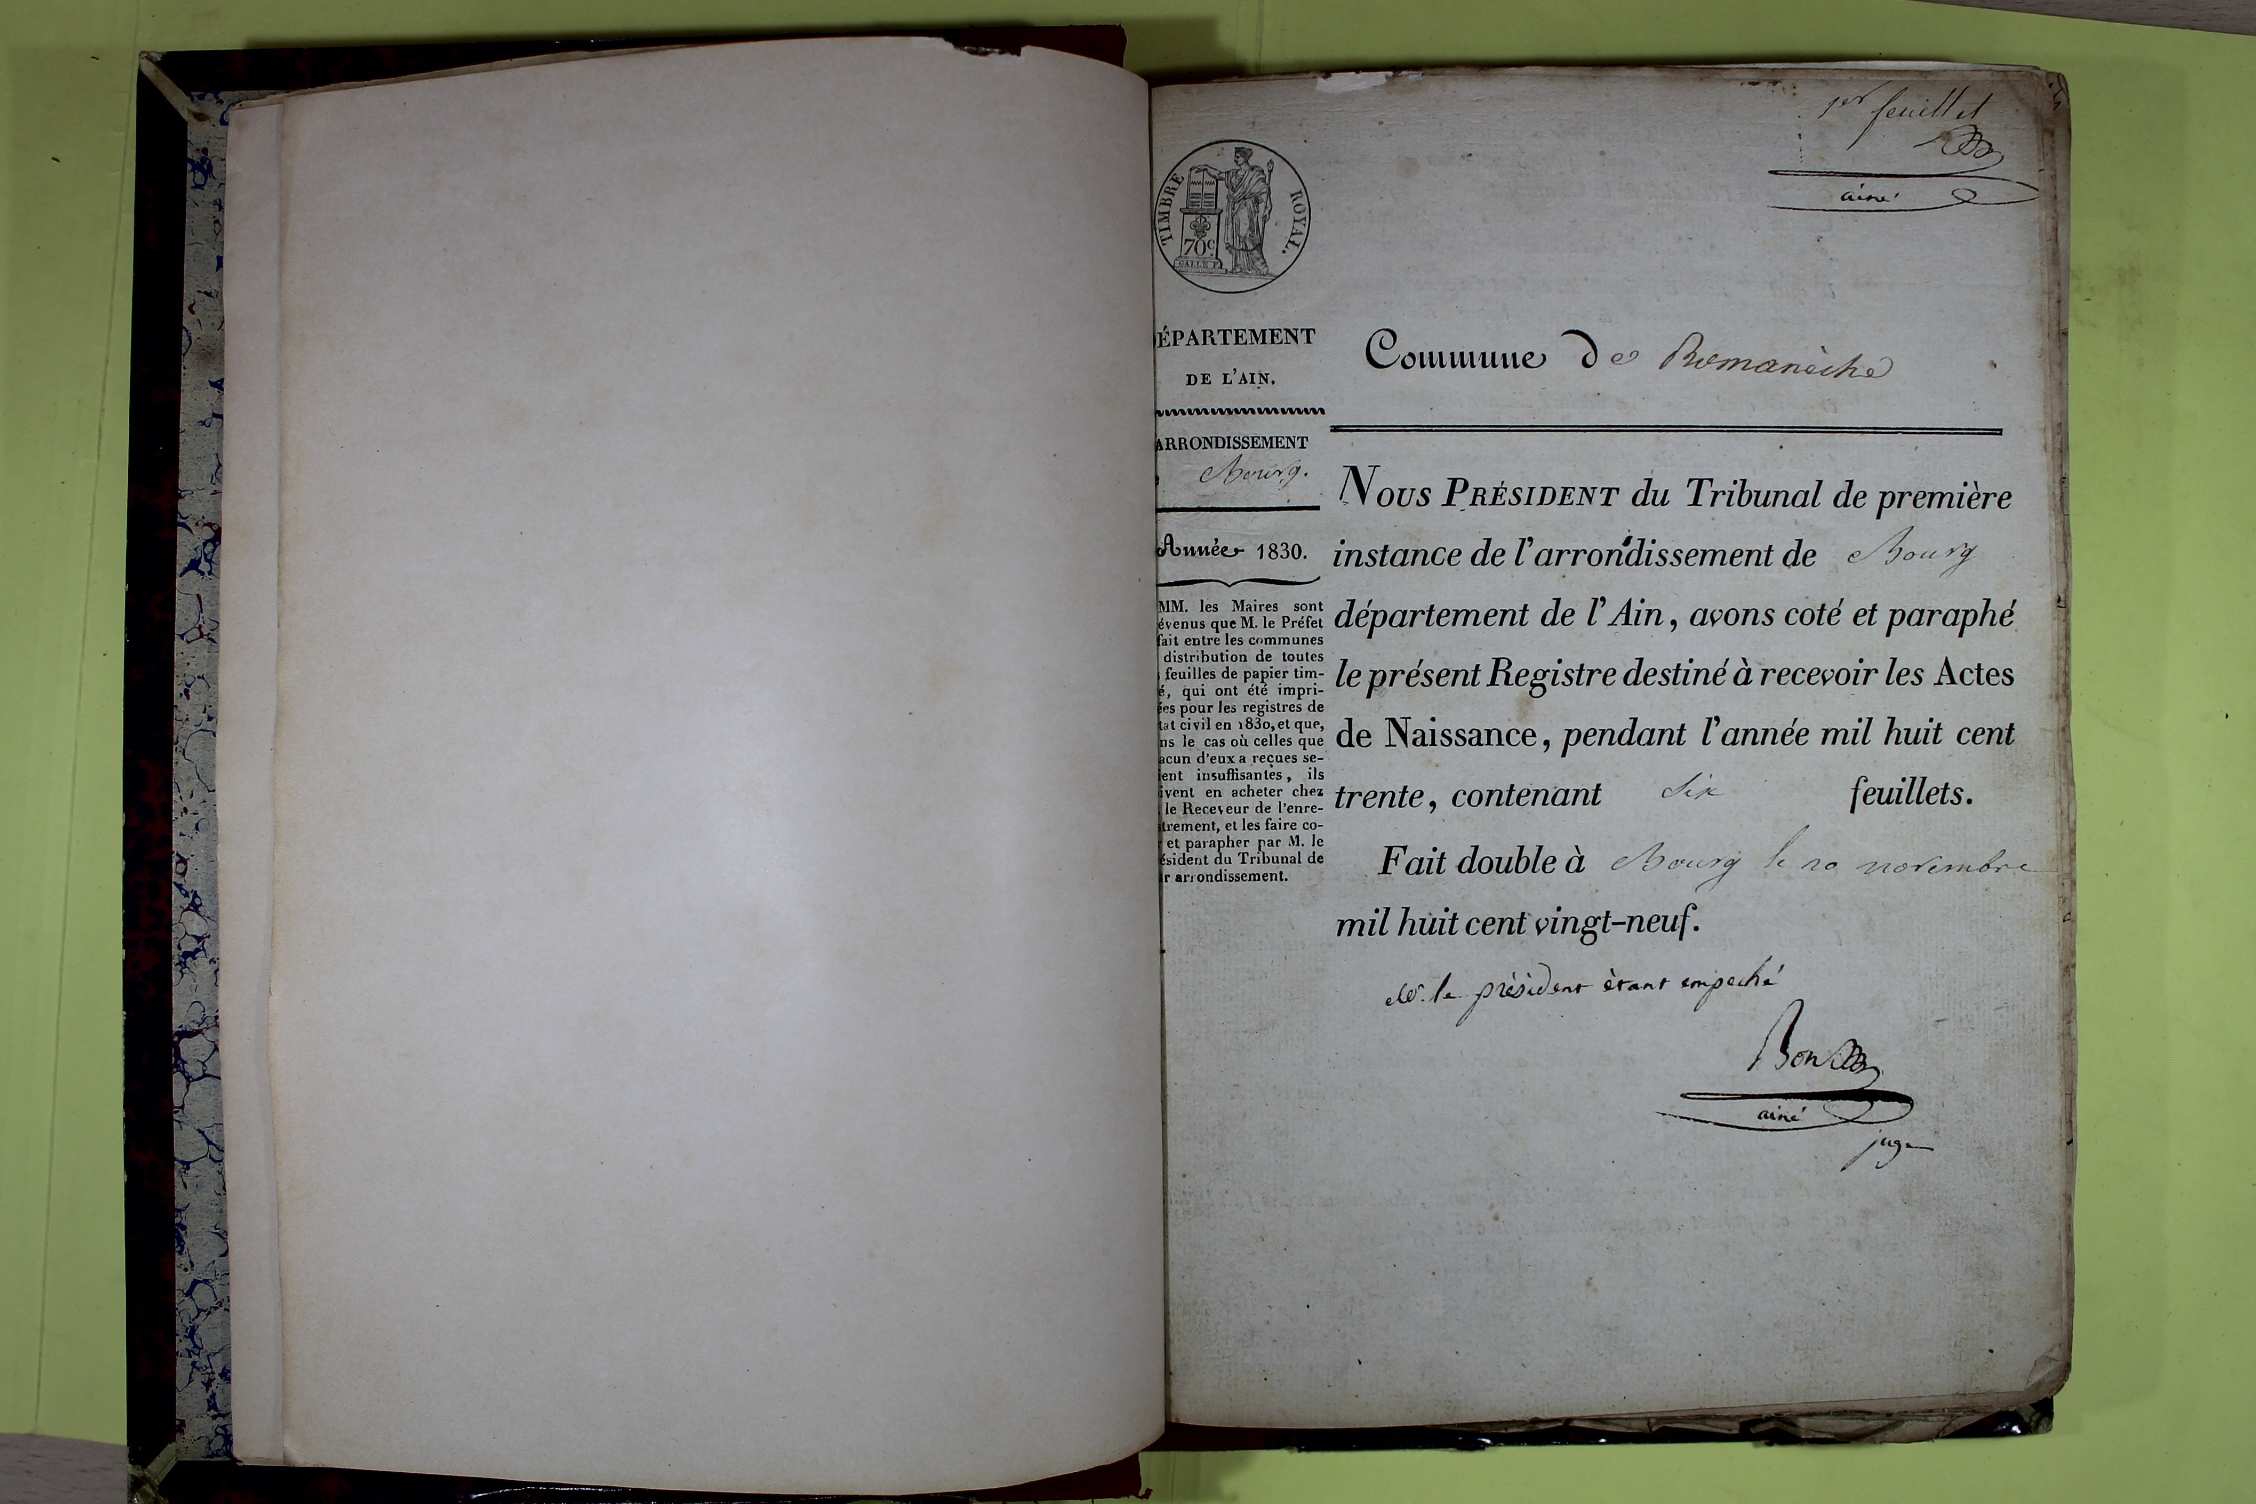 1er feuillet
ainé
TIMBRE ROYAL.
70c
GALLE F.
ÉPARTEMENT
DE L'AIN.
ARRONDISSEMENT
Bourg.
Année 1830.
MM. les Maires sont
évenus que M. le Préfet
fait entre les communes
distribution de toutes
feuilles de papier tim-
é, qui ont été impri-
ées pour les registres de
tat civil en 1830, et que,
ns le cas où celles que
acun d'eux a reçues se-
ient insuffisantes, ils
ivent en acheter chez
le Receveur de l'enre-
trement, et les faire co-
et parapher par M. le
ésident du Tribunal de
r arrondissement.
Commune de Romanèche
NOUS PRÉSIDENT du Tribunal de première
instance de l'arrondissement de Bourg
département de l'Ain, avons coté et paraphé
le présent Registre destiné à recevoir les Actes
de Naissance, pendant l'année mil huit cent
trente, contenant six feuillets.
Fait double à Bourg le 20 novembre
mil huit cent vingt-neuf.
Mr. le président étant empeché
ainé
juge